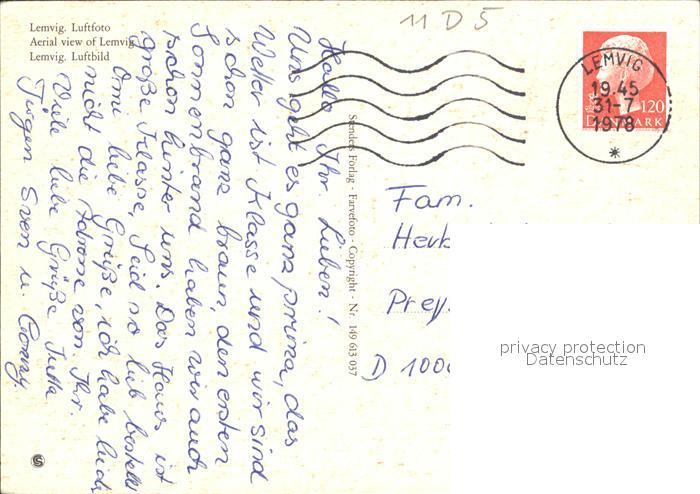 Lemvig. Luftfoto
Aerial view of Lemvig
Lemvig. Luftbild
11 D 5
LEMVIG
19.45
31-7
1978
120
DANMARK
Hallo Ihr Lieben!
Uns geht es ganz prima, das
Wetter ist Klasse und wir sind
schon ganz braun, den ersten
Sonnenbrand haben wir auch
schon hinter uns. Das Haus ist
große Klasse. Seid so lieb bestellt
Omi liebe Grüße, ich habe leider
nicht die Adresse von Ihr.
Viele liebe Grüße Jutta
Jürgen Sven u. Conny
Stenders Forlag - Farvefoto - Copyright - Nr. 149 613 037
Fam.
D 100
privacy protection
Datenschutz